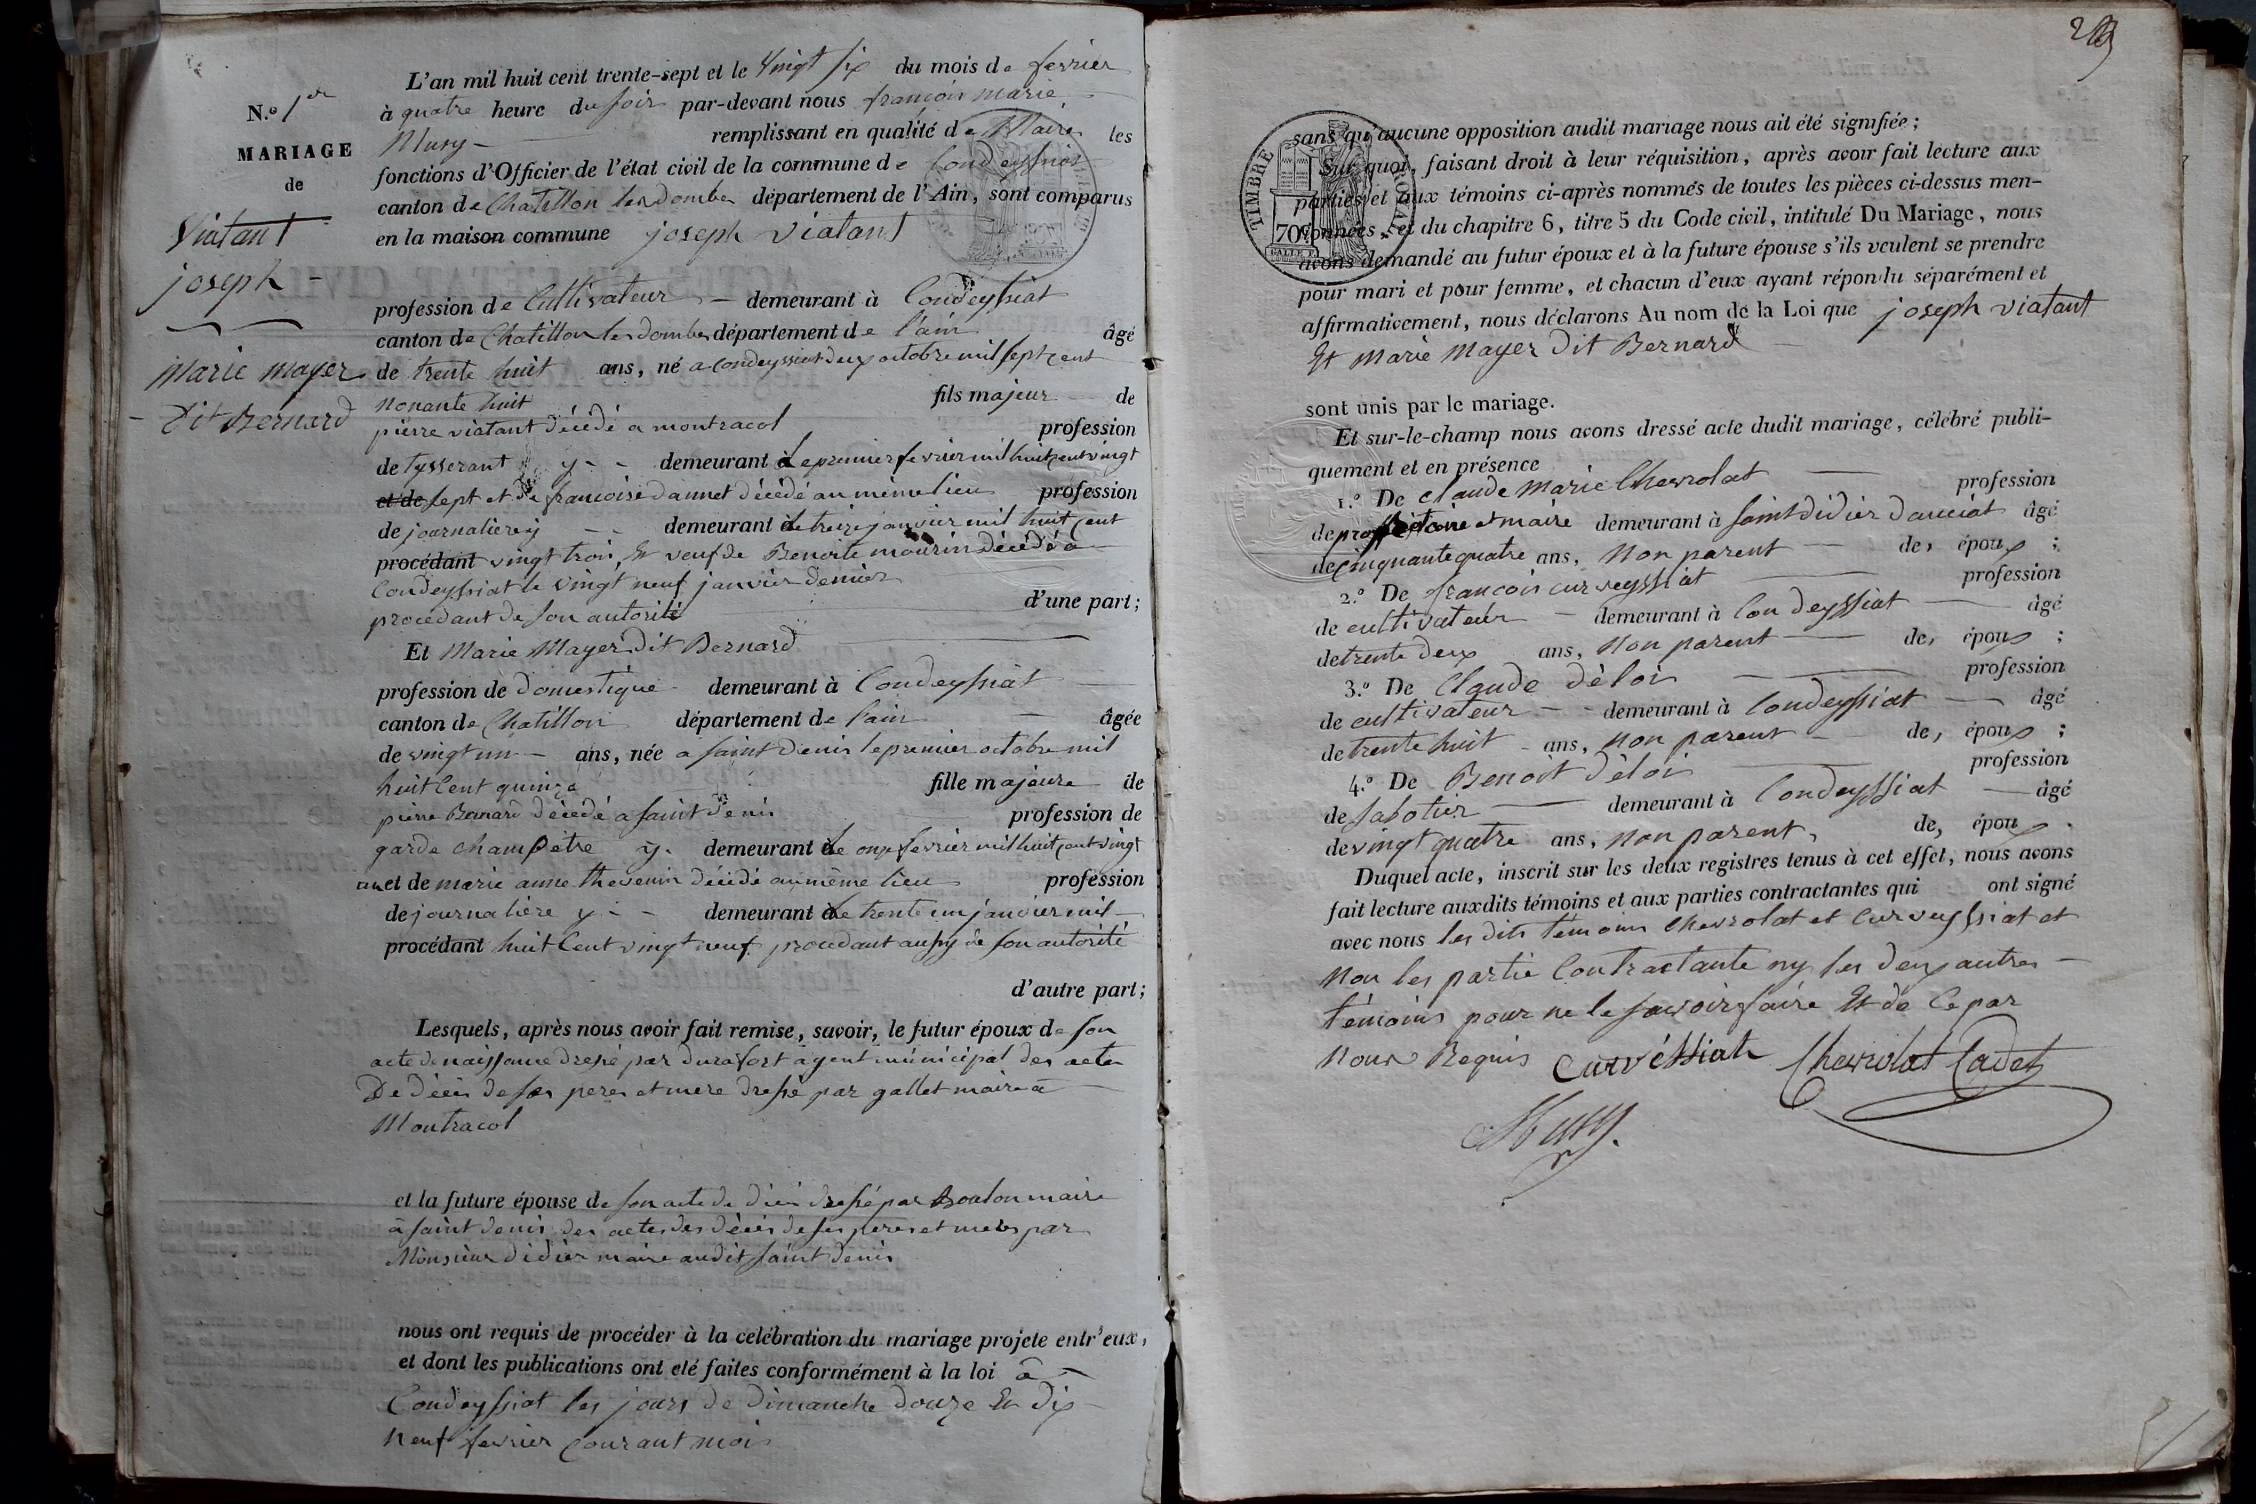 L'an mil huit cent trente-sept et le Vingt six du mois de fevrier
N.º 1er
à quatre heure du soir par-devant nous françois marie
MARIAGE
Mury - remplissant en qualité de Maire les
de
fonctions d'Officier de l'état civil de la commune de Condeyssiat
canton de Chatillon les dombes département de l'Ain, sont comparus
Viatant
en la maison commune joseph viatant
joseph -
profession de Cultivateur - demeurant à Condeyssiat
canton de Chatillon les dombes département de l'ain âgé
Marie mayer
de trente huit ans, né a condeyssiat deux octobre mil sept cent
Dit Bernard
nonante huit fils majeur de
pierre viatant décédé a montracol profession
de tysserant y - - demeurant à le premier fevrier mil huit cent vingt
et de sept et de francoise dannet décédé au même lieu profession
de journalière y - - demeurant à le treize janvier mil huit cent
procédant vingt trois, Et veuf de Benoite mourin décédé a
Condeyssiat le vingt neuf janvier dernier
procedant de son autorité d'une part;
Et Marie Mayer Dit Bernard
profession de domestique demeurant à Condeyssiat
canton de Chatillon département de l'ain - âgée
de vingt un - ans, née a saint denis le premier octobre mil
huit Cent quinze fille majeure de
pierre Bernard décédé a saint denis profession de
garde champètre y. demeurant à le onze fevrier mil huit cent vingt
un et de marie anne thevenin décédé au même lieu profession
de journalière y - - demeurant à le trente un janvier mil
procédant huit Cent vingt neuf procedant aussy de son autorité
d'autre part;
Lesquels, après nous avoir fait remise, savoir, le futur époux de son
acte de naissance dressé par durafort agent municipal des actes
De décés de ses peres et mere dressé par gallet maire a
Montracol
et la future épouse de son acte de décés dressé par maire
à saint denis des actes des décés de ses peres et meres par
Monsieur didier maire audit saint denis
nous ont requis de procéder à la celébration du mariage projete entr'eux,
et dont les publications ont eté faites conformément à la loi à
Condeyssiat les jours de Dimanche douze Et dix
neuf fevrier courant mois
TIMBRE ROYAL
70
sans qu'aucune opposition audit mariage nous ait été signifiée;
Sur quoi, faisant droit à leur réquisition, après avoir fait lecture aux
parties et aux témoins ci-après nommés de toutes les pièces ci-dessus men-
tionnées, et du chapitre 6, titre 5 du Code civil, intitulé Du Mariage, nous
avons demandé au futur époux et à la future épouse s'ils veulent se prendre
pour mari et pour femme, et chacun d'eux ayant répondu séparément et
affirmativement, nous déclarons Au nom de la Loi que joseph viatant
Et Marie Mayer Dit Bernard
sont unis par le mariage.
Et sur-le-champ nous avons dressé acte dudit mariage, célébré publi-
quement et en présence
1.º De Claude Marie Chevrolat profession
de propriétaire et maire demeurant à saint didier daussiat âgé
de cinquante quatre ans, non parent des époux ;
2.º De francois curveyssiat profession
de cultivateur - demeurant à Condeyssiat âgé
de trente deux ans, non parent des époux ;
3.º De Claude déloi profession
de cultivateur - demeurant à Condeyssiat âgé
de trente huit - ans, non parent - des époux ;
4.º De Benoit déloi profession
de sabotier demeurant à Condeyssiat âgé
de vingt quatre ans, non parent, des époux .
Duquel acte, inscrit sur les deux registres tenus à cet effet, nous avons
fait lecture auxdits témoins et aux parties contractantes qui ont signé
avec nous les dits témoins Chevrolat et Curveyssiat et
non les partie Contractante ny les deux autres -
témoins pour ne le savoir faire Et de Ce par
nous Requis Curvéssiat Chevrolat Cadet
Mury.